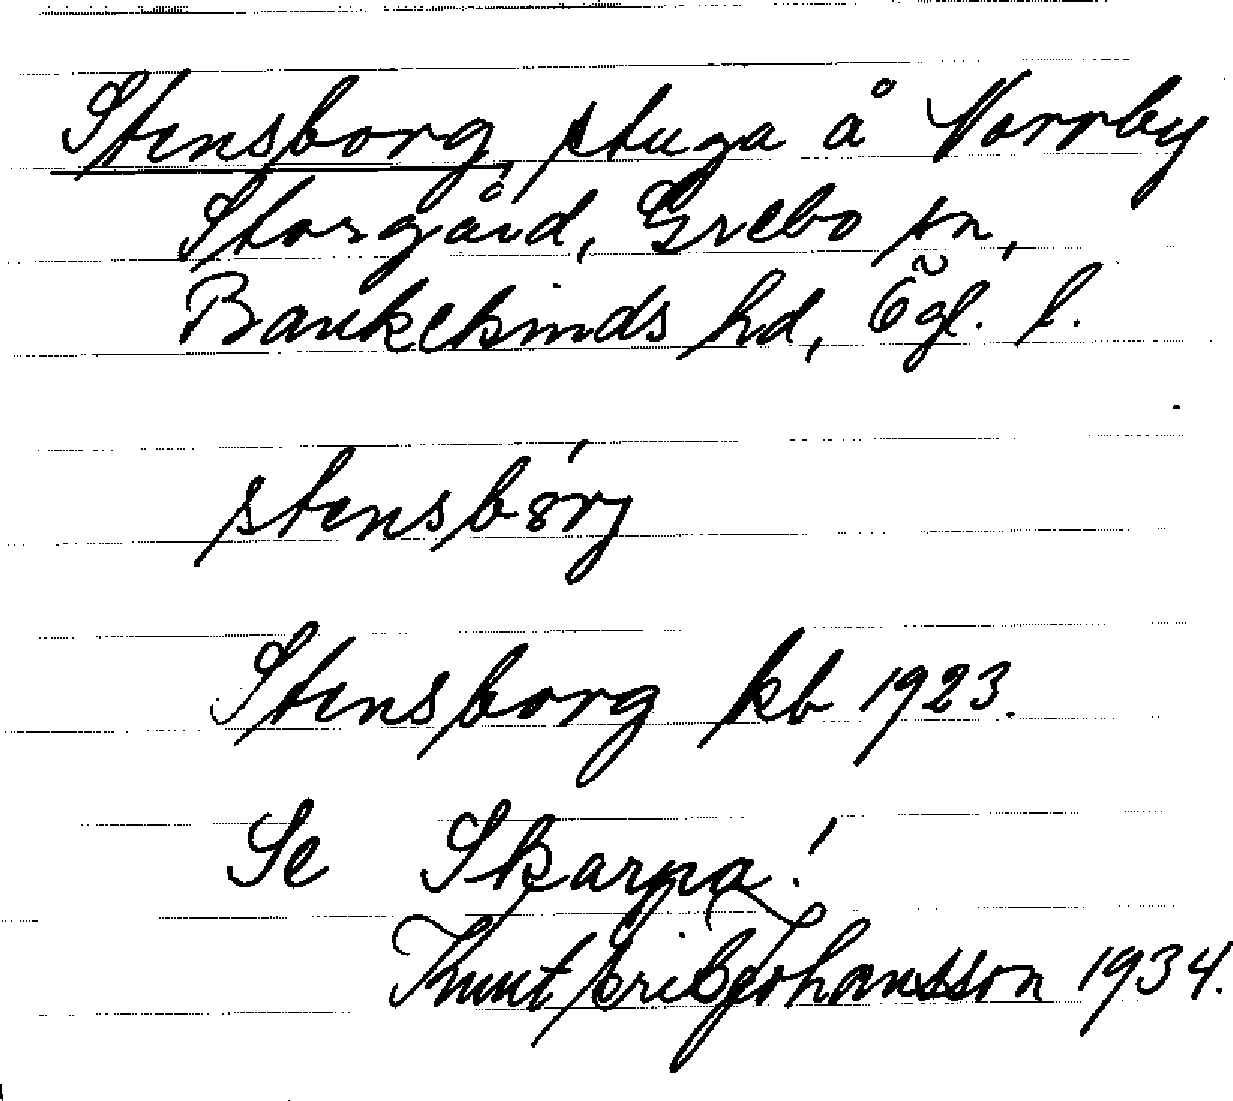 Stensborg, stuga å Norrby
Storgård, Grebo sn,
Bankekinds hd, Ögl. l.
stensbórg
Stensborg kb 1923.
Se Skarpa!
Knut Erik Johansson 1934.